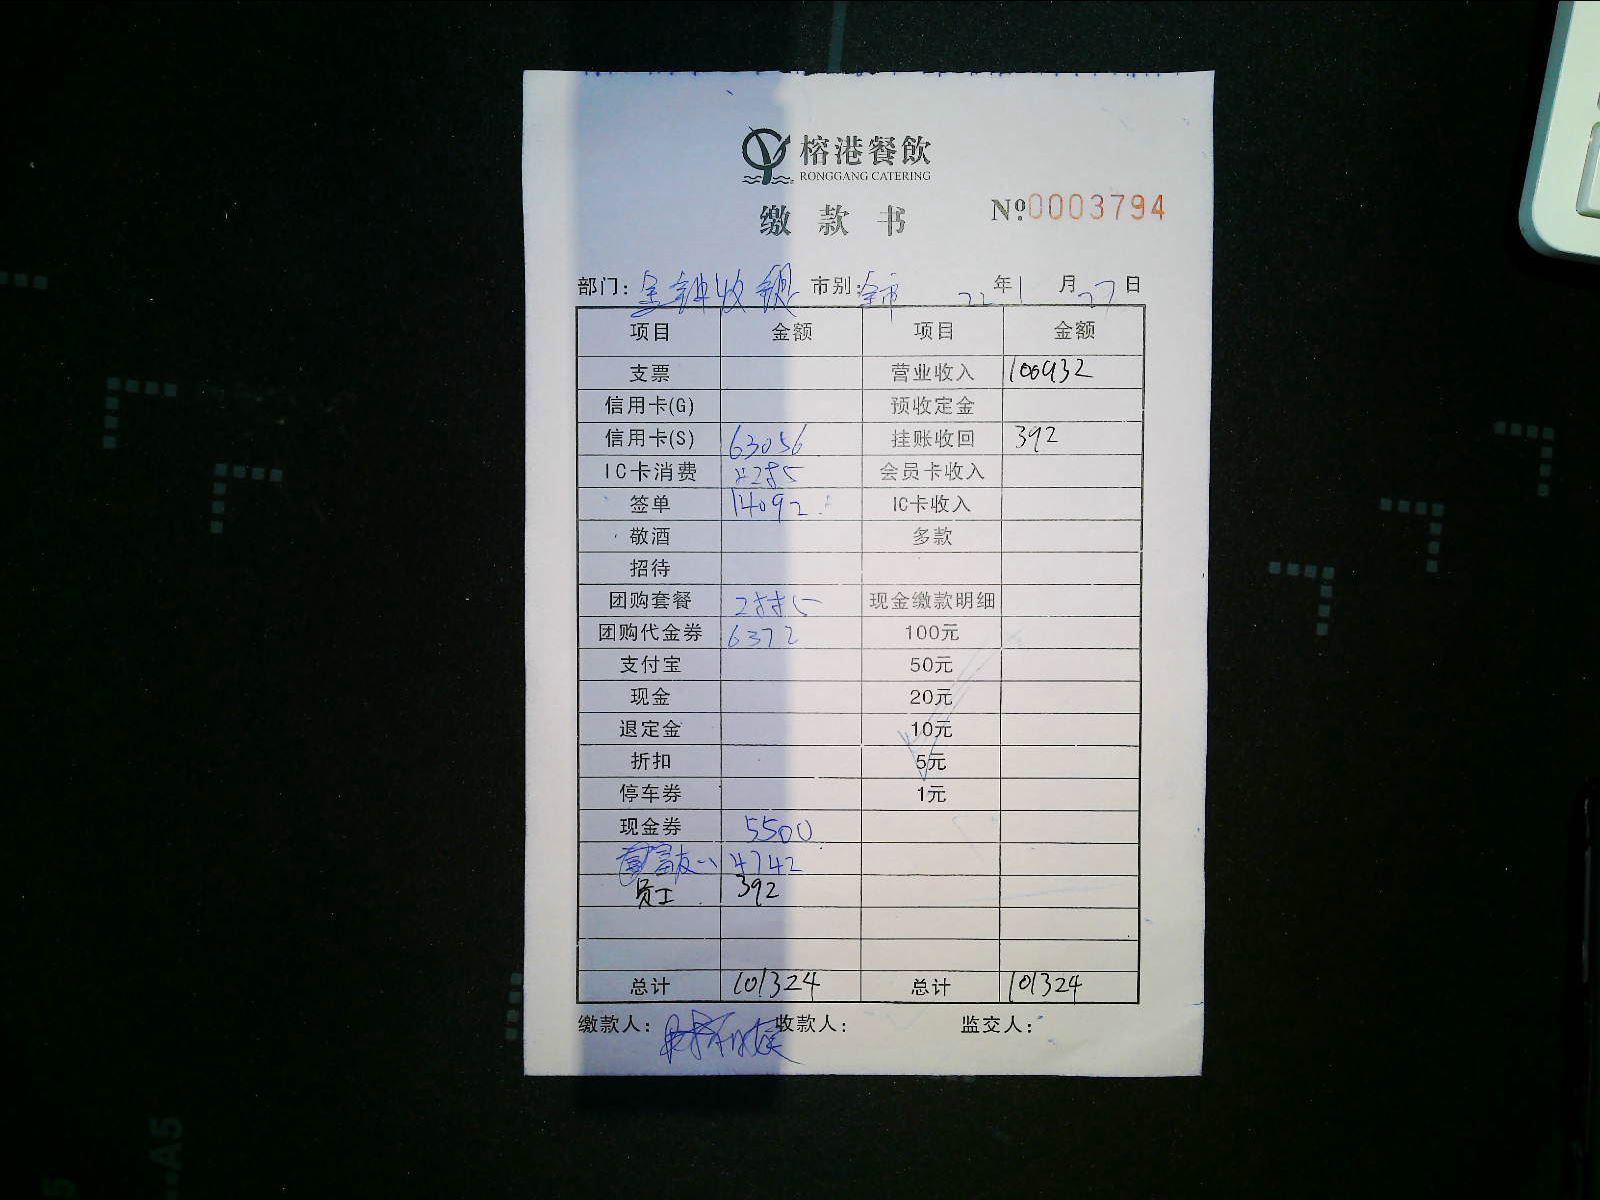 榕港餐飲
RONGGANG CATERING
缴款书 №0003794
部门: 金钟收银 市别: 全市 22年1月27日
项目 金额 项目 金额
支票 营业收入 100932
信用卡(G) 预收定金
信用卡(S) 63056 挂账收回 392
IC卡消费 4285 会员卡收入
签单 14092 IC卡收入
敬酒 多款
招待
团购套餐 2885 现金缴款明细
团购代金券 6372 100元
支付宝 50元
现金 20元
退定金 10元
折扣 5元
停车券 1元
现金券 5500
富友 4742
员工 392
总计 101324 总计 101324
缴款人: 收款人: 监交人:
A5